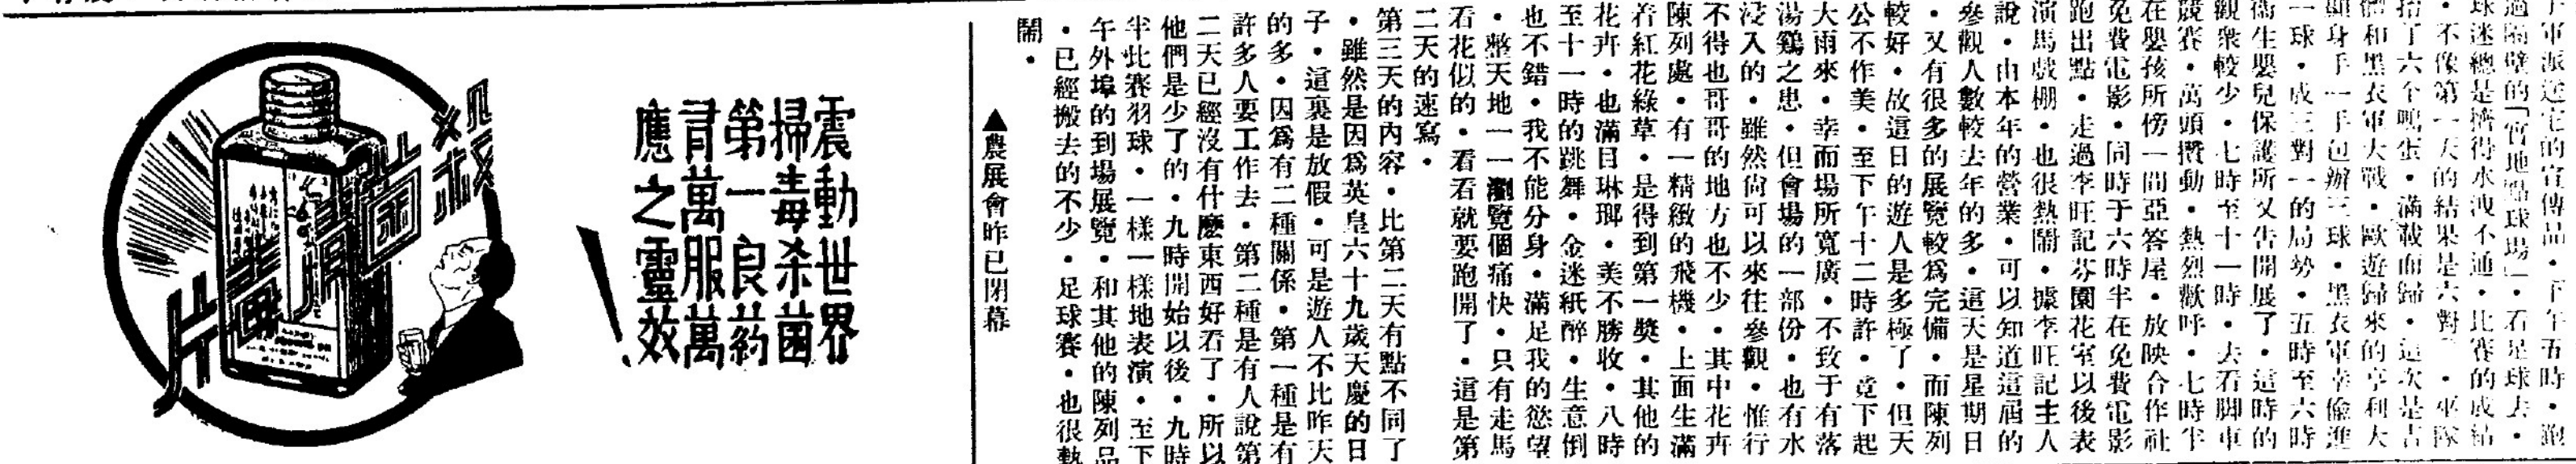 子軍派送它的宣傳品・下午五時・跑
過隔壁的「宮地點球場」・看足球去・
球迷總是擠得水洩不通・比賽的成績
・不像第一天的結果是六對一・巫隊
抬了六个鴨蛋・滿載而歸・這次是古
體和黑衣軍大戰・歐遊歸來的亨利大
顯身手一手包辦三球・黑衣軍幸倫進
一球・成三對一的局勢・五時至六時
衛生嬰兒保護所又告開展了・這時的
觀衆較少・七時至十一時・去看脚車
競賽・萬頭攢動・熱烈歡呼・七時半
在嬰孩所傍一間亞答屋・放映合作社
免費電影・同時于六時半在免費電影
跑出點・走過李旺記芬園花室以後表
演馬戲棚・也很熱鬧・據李旺記主人
說・由本年的營業・可以知道這屆的
參觀人數較去年的多・這天是星期日
・又有很多的展覽較爲完備・而陳列
較好・故這日的遊人是多極了・但天
公不作美・至下午十二時許・竟下起
大雨來・幸而場所寬廣・不致于有落
湯鷄之患・但會場的一部份・也有水
浸入的・雖然尙可以來往參觀・惟行
不得也哥哥的地方也不少・其中花卉
陳列處・有一精緻的飛機・上面生滿
着紅花綠草・是得到第一獎・其他的
花卉・也滿目琳瑯・美不勝收・八時
至十一時的跳舞・金迷紙醉・生意倒
也不錯・我不能分身・滿足我的慾望
・整天地一一瀏覽個痛快・只有走馬
看花似的・看看就要跑開了・這是第
二天的速寫・
第三天的內容・比第二天有點不同了
・雖然是因爲英皇六十九歲天慶的日
子・這裏是放假・可是遊人不比昨天
的多・因爲有二種關係・第一種是有
許多人要工作去・第二種是有人說第
二天已經沒有什麼東西好看了・所以
他們是少了的・九時開始以後・九時
半比賽羽球・一樣一樣地表演・至下
午外埠的到場展覽・和其他的陳列品
・已經搬去的不少・足球賽・也很熱
鬧・
▲農展會昨已閉幕
震動世界
掃毒杀菌
第一良葯
有萬服萬
應之靈效
！